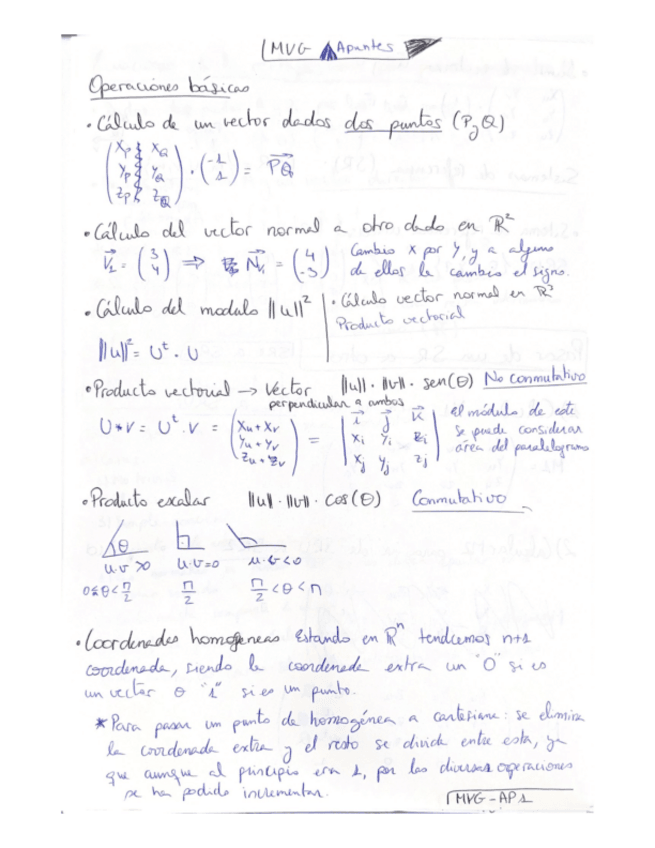 MVG Apuntes
Operaciones básicas
• Cálculo de un vector dados dos puntos (P y Q)
(Xp XQ
Yp YQ
Zp ZQ) · (-1
1) = PQ
• Cálculo del vector normal a otro dado en R²
V₁ = (3
4) ⇒ N_V₁ = (4
-3)
Cambio x por y, y a alguno
de ellos le cambio el signo.
• Cálculo del modulo ||u||²
||u||² = Uᵗ · U
• Cálculo vector normal en R³
Producto vectorial
• Producto vectorial → Vector ||u|| · ||v|| · sen(θ) No conmutativo
perpendicular a ambos
U*V = Uᵗ · V = (Xu + Xv
Yu + Yv
Zu + Zv) = | i j k
xi yi zi
xj yj zj |
El módulo de este
se puede considerar
área del paralelogramo
• Producto exalar ||u|| · ||v|| · cos(θ) Conmutativo
θ
u·v > 0 u·v = 0 u·v < 0
0 ≤ θ < π/2 π/2 π/2 < θ < π
• Coordenadas homogeneas Estando en Rⁿ tendremos n+1
coordenada, siendo la coordenada extra un "0" si es
un vector o "1" si es un punto.
* Para pasar un punto de homogénea a cartesiana: se elimina
la coordenada extra y el resto se divide entre esta, ya
que aunque al principio era 1, por las diversas operaciones
se ha podido incrementar.
MVG - AP1